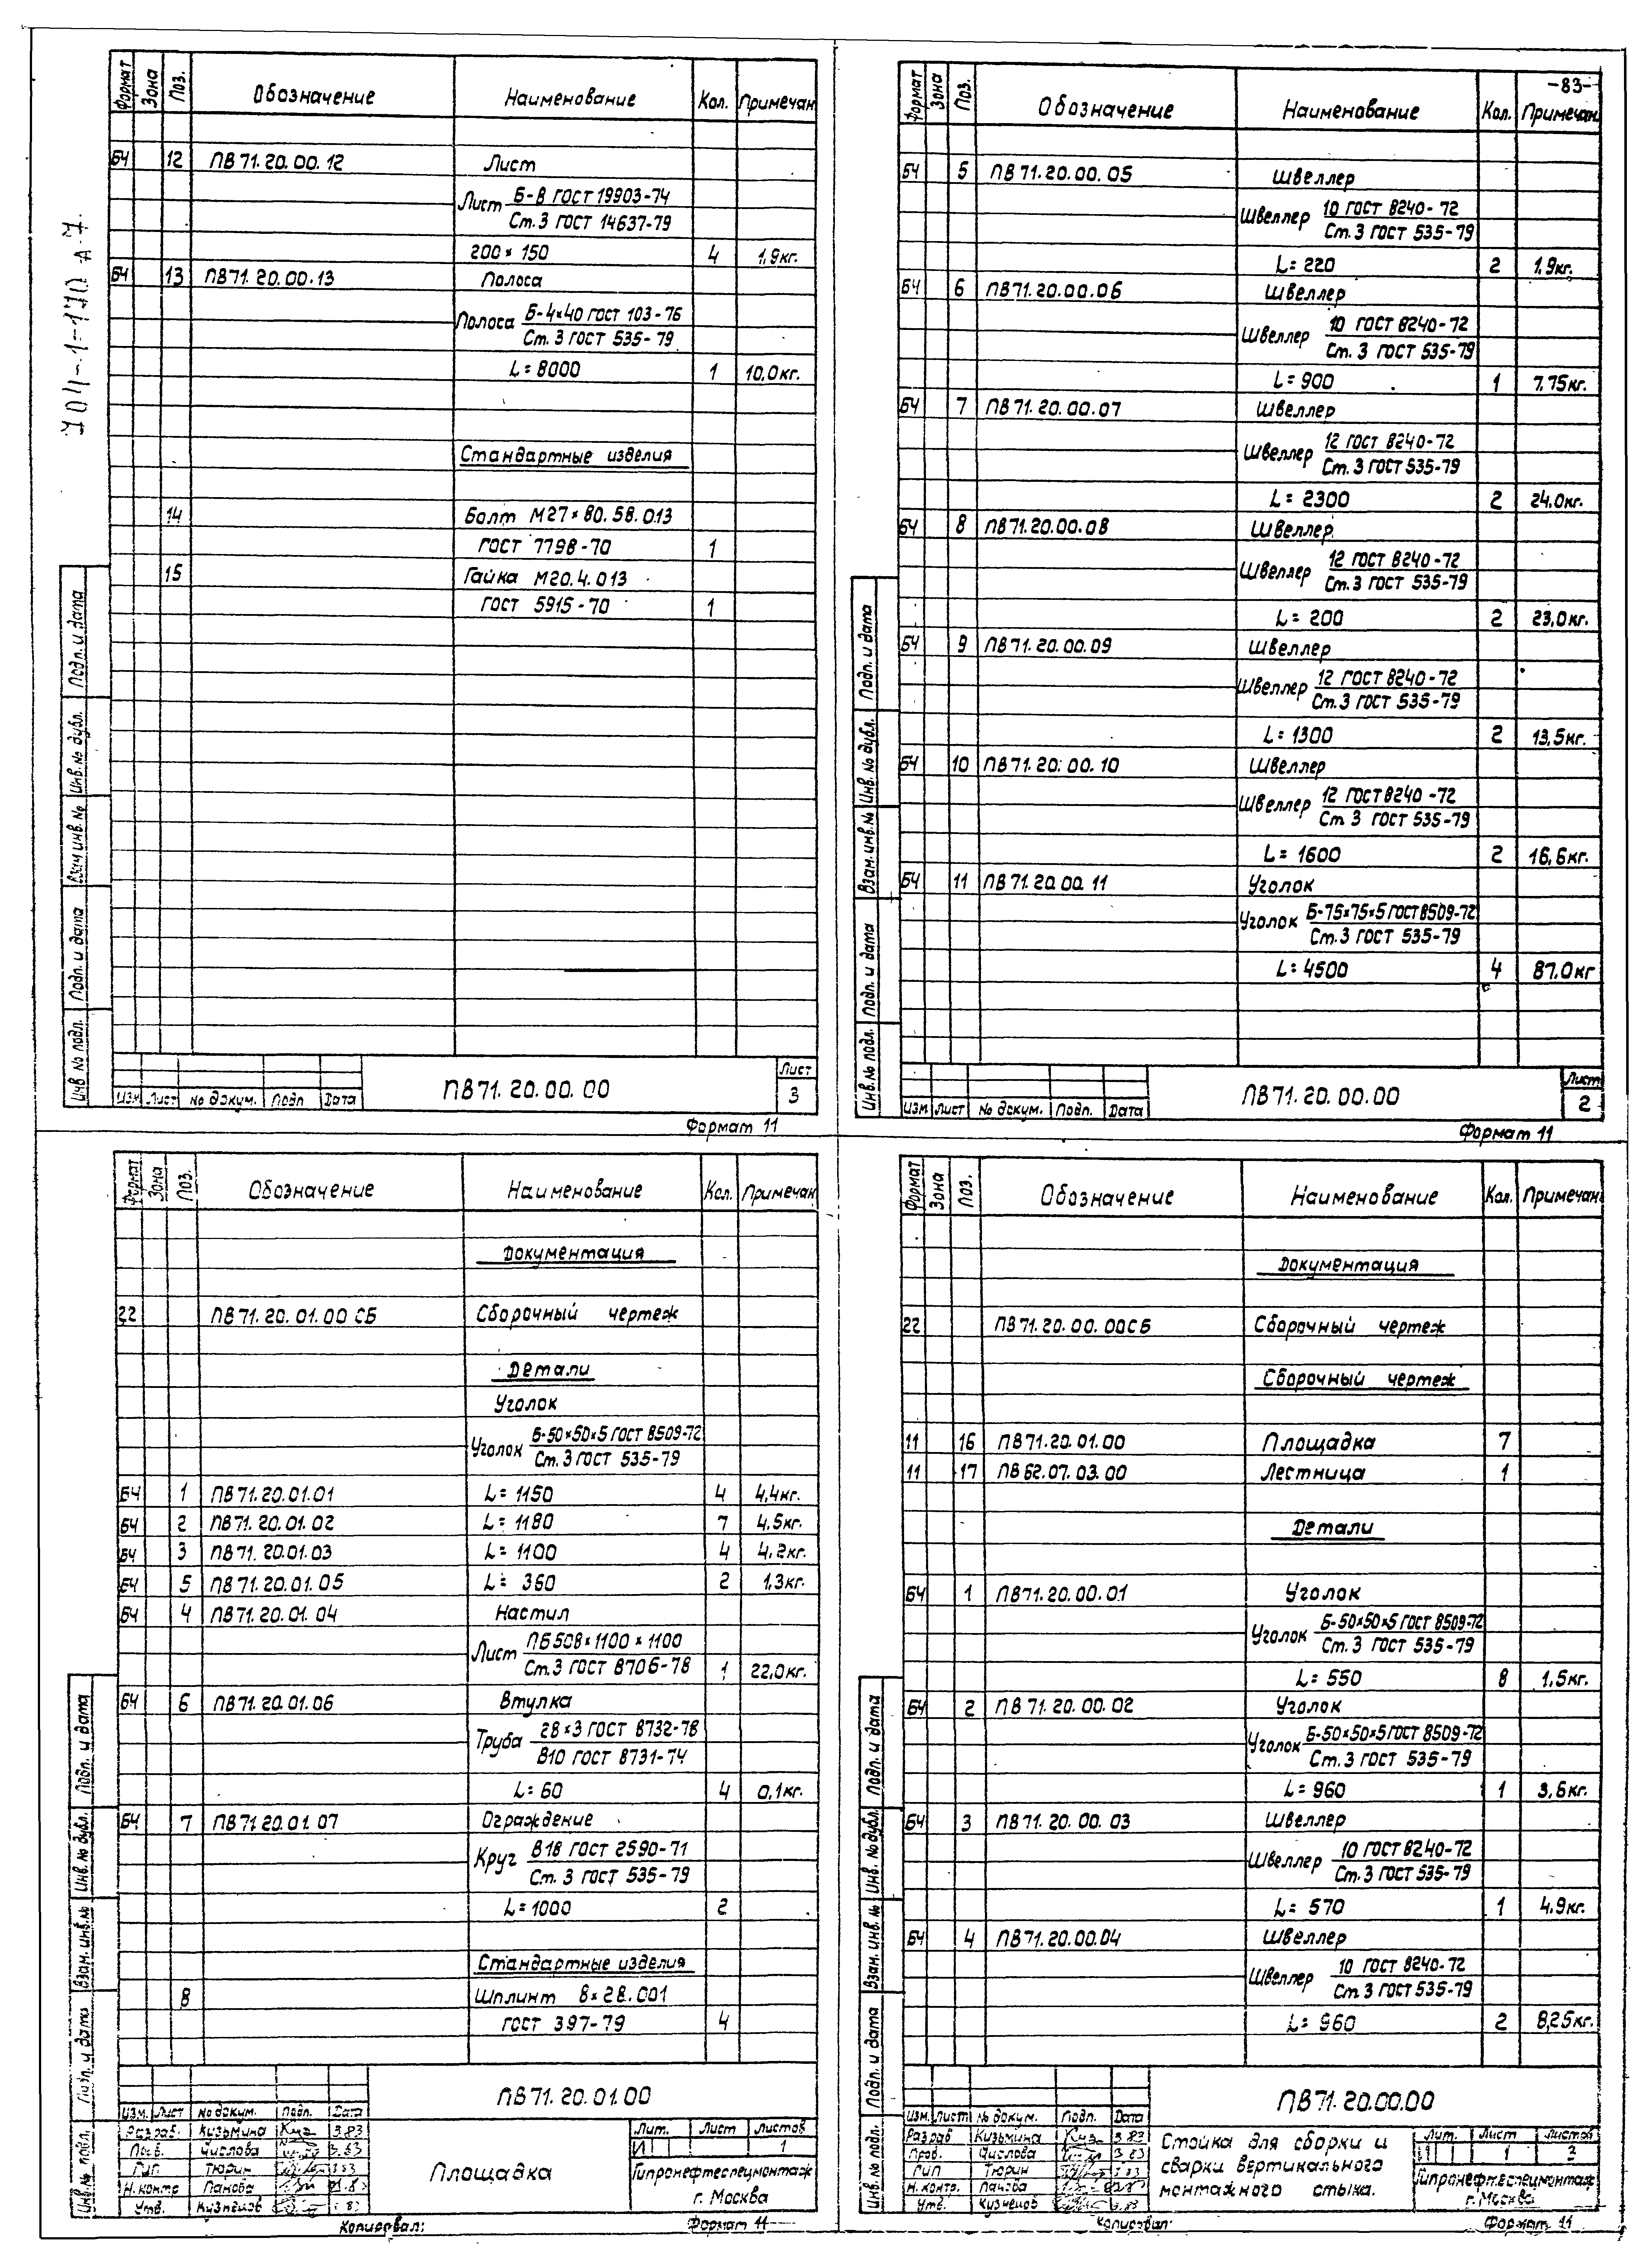 Формат Зона Поз. Обозначение Наименование Кол. Примечан
БЧ 12 ПВ 71.20.00.12 Лист
Лист Б-8 ГОСТ 19903-74
Ст.3 ГОСТ 14637-79
200×150 4 1,9кг.
БЧ 13 ПВ71.20.00.13 Полоса
Полоса Б-4×40 ГОСТ 103-76
Ст.3 ГОСТ 535-79
L=8000 1 10,0кг.
Стандартные изделия
14 Болт М27×80.58.013
ГОСТ 7798-70 1
15 Гайка М20.4.013
ГОСТ 5915-70 1
Инв № подл. Подп. и дата Взам инв. № Инв. № дубл. Подп. и дата
Изм Лист № докум. Подп Дата
ПВ71.20.00.00
Лист
3
Формат 11
-83-
Формат Зона Поз. Обозначение Наименование Кол. Примечан
БЧ 5 ПВ 71.20.00.05 Швеллер
Швеллер 10 ГОСТ 8240-72
Ст.3 ГОСТ 535-79
L=220 2 1,9кг.
БЧ 6 ПВ71.20.00.06 Швеллер
Швеллер 10 ГОСТ 8240-72
Ст.3 ГОСТ 535-79
L=900 1 7.75кг.
БЧ 7 ПВ71.20.00.07 Швеллер
Швеллер 12 ГОСТ 8240-72
Ст.3 ГОСТ 535-79
L=2300 2 24.0кг.
БЧ 8 ПВ71.20.00.08 Швеллер
Швеллер 12 ГОСТ 8240-72
Ст.3 ГОСТ 535-79
L=200 2 23,0кг.
БЧ 9 ПВ71.20.00.09 Швеллер
Швеллер 12 ГОСТ 8240-72
Ст.3 ГОСТ 535-79
L=1300 2 13,5кг.
БЧ 10 ПВ71.20.00.10 Швеллер
Швеллер 12 ГОСТ 8240-72
Ст.3 ГОСТ 535-79
L=1600 2 16,6кг.
БЧ 11 ПВ 71.20.00.11 Уголок
Уголок Б-75×75×5 ГОСТ 8509-72
Ст.3 ГОСТ 535-79
L=4500 4 87.0кг
Инв.№ подл. Подп. и дата Взам.инв.№ Инв. № дубл. Подп. и дата
Изм Лист № докум. Подп. Дата
ПВ71.20.00.00
Лист
2
Формат 11
Формат Зона Поз. Обозначение Наименование Кол. Примечан
Документация
22 ПВ71.20.01.00 СБ Сборочный чертеж
Детали
Уголок
Уголок Б-50×50×5 ГОСТ 8509-72
Ст.3 ГОСТ 535-79
БЧ 1 ПВ71.20.01.01 L=1150 4 4,4кг.
БЧ 2 ПВ71.20.01.02 L=1180 7 4.5кг.
БЧ 3 ПВ71.20.01.03 L=1100 4 4,2кг.
БЧ 5 ПВ71.20.01.05 L=360 2 1.3кг.
БЧ 4 ПВ71.20.01.04 Настил
Лист ПБ508×1100×1100
Ст.3 ГОСТ 8706-78 1 22,0кг.
БЧ 6 ПВ71.20.01.06 Втулка
Труба 28×3 ГОСТ 8732-78
В10 ГОСТ 8731-74
L=60 4 0,1кг.
БЧ 7 ПВ71.20.01.07 Ограждение
Круг В18 ГОСТ 2590-71
Ст.3 ГОСТ 535-79
L=1000 2
Стандартные изделия
8 Шплинт 8×28.001
ГОСТ 397-79 4
Инв.№ подл. Подп. и дата Взам.инв.№ Инв. № дубл. Подп. и дата
Изм. Лист № докум. Подп. Дата
Разраб. Кузьмина 3.83
Пров. Числова 3.83
Гип Тюрин
Н.контр Панова
Утв. Кузнецов
ПВ71.20.01.00
Площадка
Лит. Лист Листов
И 1
Гипронефтеспецмонтаж
г. Москва
Копировал:
Формат 11
Формат Зона Поз. Обозначение Наименование Кол. Примечан
Документация
22 ПВ71.20.00.00СБ Сборочный чертеж
Сборочный чертеж
11 16 ПВ71.20.01.00 Площадка 7
11 17 ПВ62.07.03.00 Лестница 1
Детали
БЧ 1 ПВ71.20.00.01 Уголок
Уголок Б-50×50×5 ГОСТ 8509-72
Ст.3 ГОСТ 535-79
L=550 8 1,5кг.
БЧ 2 ПВ71.20.00.02 Уголок
Уголок Б-50×50×5 ГОСТ 8509-72
Ст.3 ГОСТ 535-79
L=960 1 3,6кг.
БЧ 3 ПВ71.20.00.03 Швеллер
Швеллер 10 ГОСТ 8240-72
Ст.3 ГОСТ 535-79
L=570 1 4.9кг.
БЧ 4 ПВ71.20.00.04 Швеллер
Швеллер 10 ГОСТ 8240-72
Ст.3 ГОСТ 535-79
L=960 2 8,25кг.
Инв.№ подл. Подп. и дата Взам.инв.№ Инв. № дубл. Подп. и дата
Изм. Лист № докум. Подп. Дата
Разраб Кузьмина 3.83
Пров. Числова 3.83
Гип Тюрин
Н.контр. Панова
Утв. Кузнецов 3.83
ПВ71.20.00.00
Стойка для сборки и
сварки вертикального
монтажного стыка.
Лит. Лист Листов
1 3
Гипронефтеспецмонтаж
г. Москва
Копировал:
Формат 11